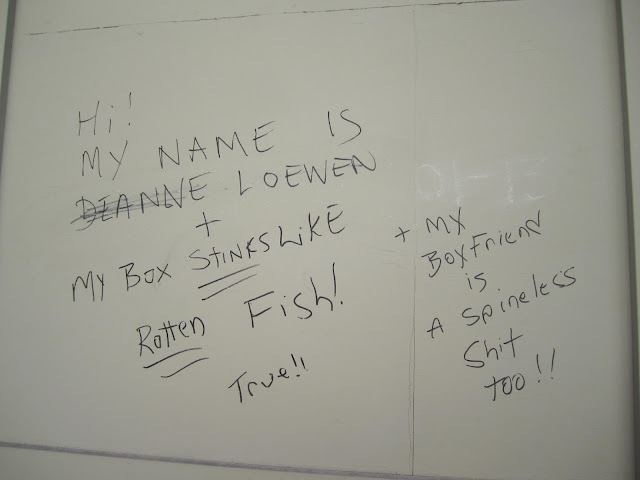 Hi!
MY NAME IS
DIANNE LOEWEN
+
MY BOX STINKS LIKE
Rotten Fish!
True!!
+ MY
BoyFriend
is
A Spineless
Shit
too!!